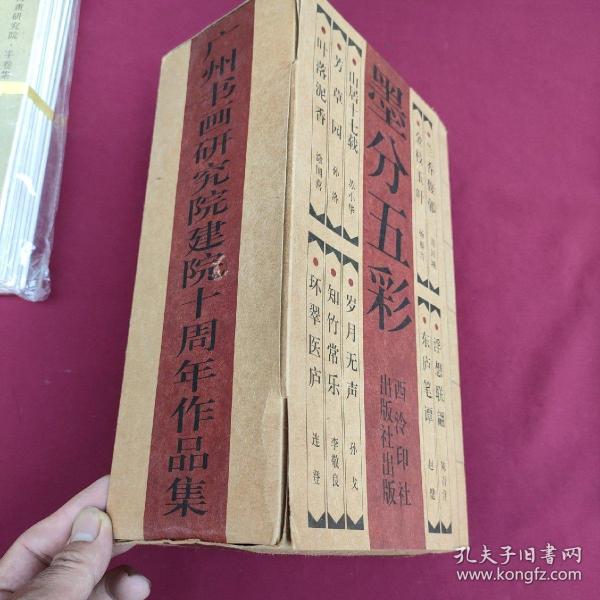 广州书画研究院建院十周年作品集
墨分五彩
西泠印社
出版社出版
山居十七载
苏小华
芳草园
孙洛
叶落泥香
岁月无声
孙戈
知竹常乐
李敬良
环翠医庐
连登
金枝玉叶
浮想联翩
东庐笔谭
赵健
孔夫子旧书网
www.kongfz.com